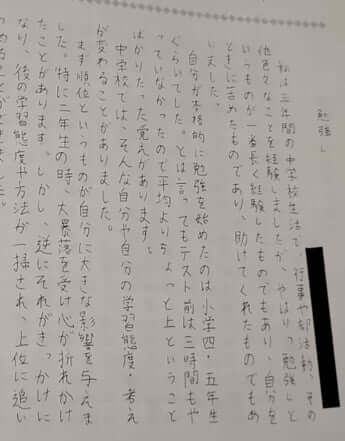 勉強し
私は三年間の中学校生活で、行事や部活動、その
他色々なことを経験しましたが、やはり「勉強」と
いうものが一番長く経験したものでもあり、自分を
ときに苦めたものであり、助けてくれたものでもあ
りました。
自分が本格的に勉強を始めたのは小学四・五年生
くらいでした。とは言ってもテスト前は三時間もや
っていなかったので平均よりちょっと上ということ
ばかりだった覚えがあります。
中学校では、そんな自分や自分の学習態度・考え
が変わることがありました。
まず順位というものが自分に大きな影響を与えま
した。特に二年生の時、大暴落を受け心が折れかけ
たことがあります。しかし、逆にそれがきっかけに
なり、後の学習態度や方法が一掃され、上位に追い
つめることができました。